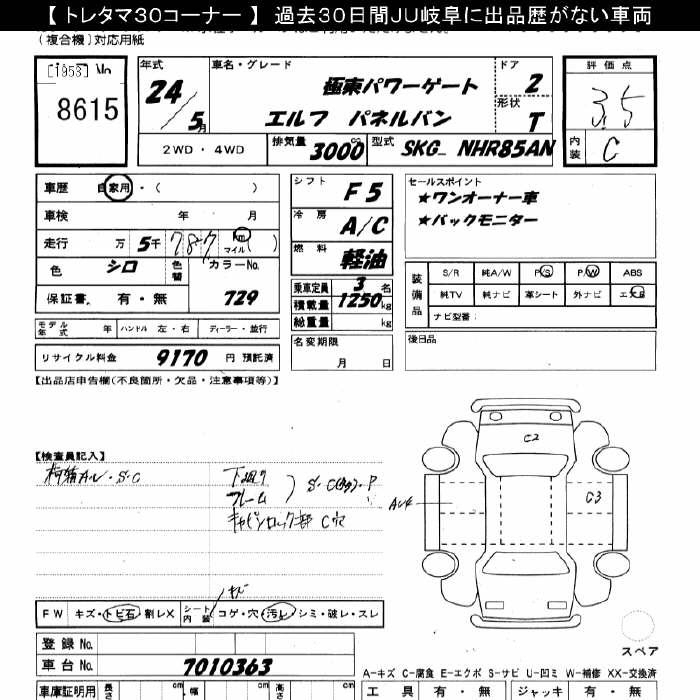 【 トレタマ30コーナー 】 過去30日間JU岐阜に出品歴がない車両
(複合機)対応用紙
[1953] No
8615
年式 24/5月
車名・グレード 極東パワーゲート
エルフ パネルバン
ドア 2
形状 T
評価点 3.5
内装 C
2WD・4WD
排気量 3000 cc
型式 SKG_ NHR85AN
車歴 自家用・( )
車検 年 月
走行 万 5千 787 km マイル ( )
色 シロ 色替 カラーNo. 729
保証書. 有・無
モデル年式 年 ハンドル 左・右 ディーラー・並行
リサイクル料金 9170 円 預託済
シフト F5
冷房 A/C
燃料 軽油
乗車定員 3 名
積載量 1250 kg
総重量 kg
名変期限 月 日
セールスポイント
★ワンオーナー車
★バックモニター
装備品
S/R 純A/W P/S P/W ABS
純TV 純ナビ 革シート 外ナビ エアB
ナビ型番:
後日品
【出品店申告欄(不良箇所・欠品・注意事項等)】
【検査員記入】
荷箱AU・S・C
下廻り
フレーム
S・C(多)・P
キャビンロック部 C穴
C2
AU4
C3
FW キズ・トビ石・割レX シート内装 コゲ・穴・汚レ・シミ・破レ・スレ
スペア
登録 No.
車台 No. 7010363
A-キズ C-腐食 E-エクボ S-サビ U-凹ミ W-補修 XX-交換済
車庫証明用 長さ cm 幅 cm 高さ cm
工具 有・無 ジャッキ 有・無